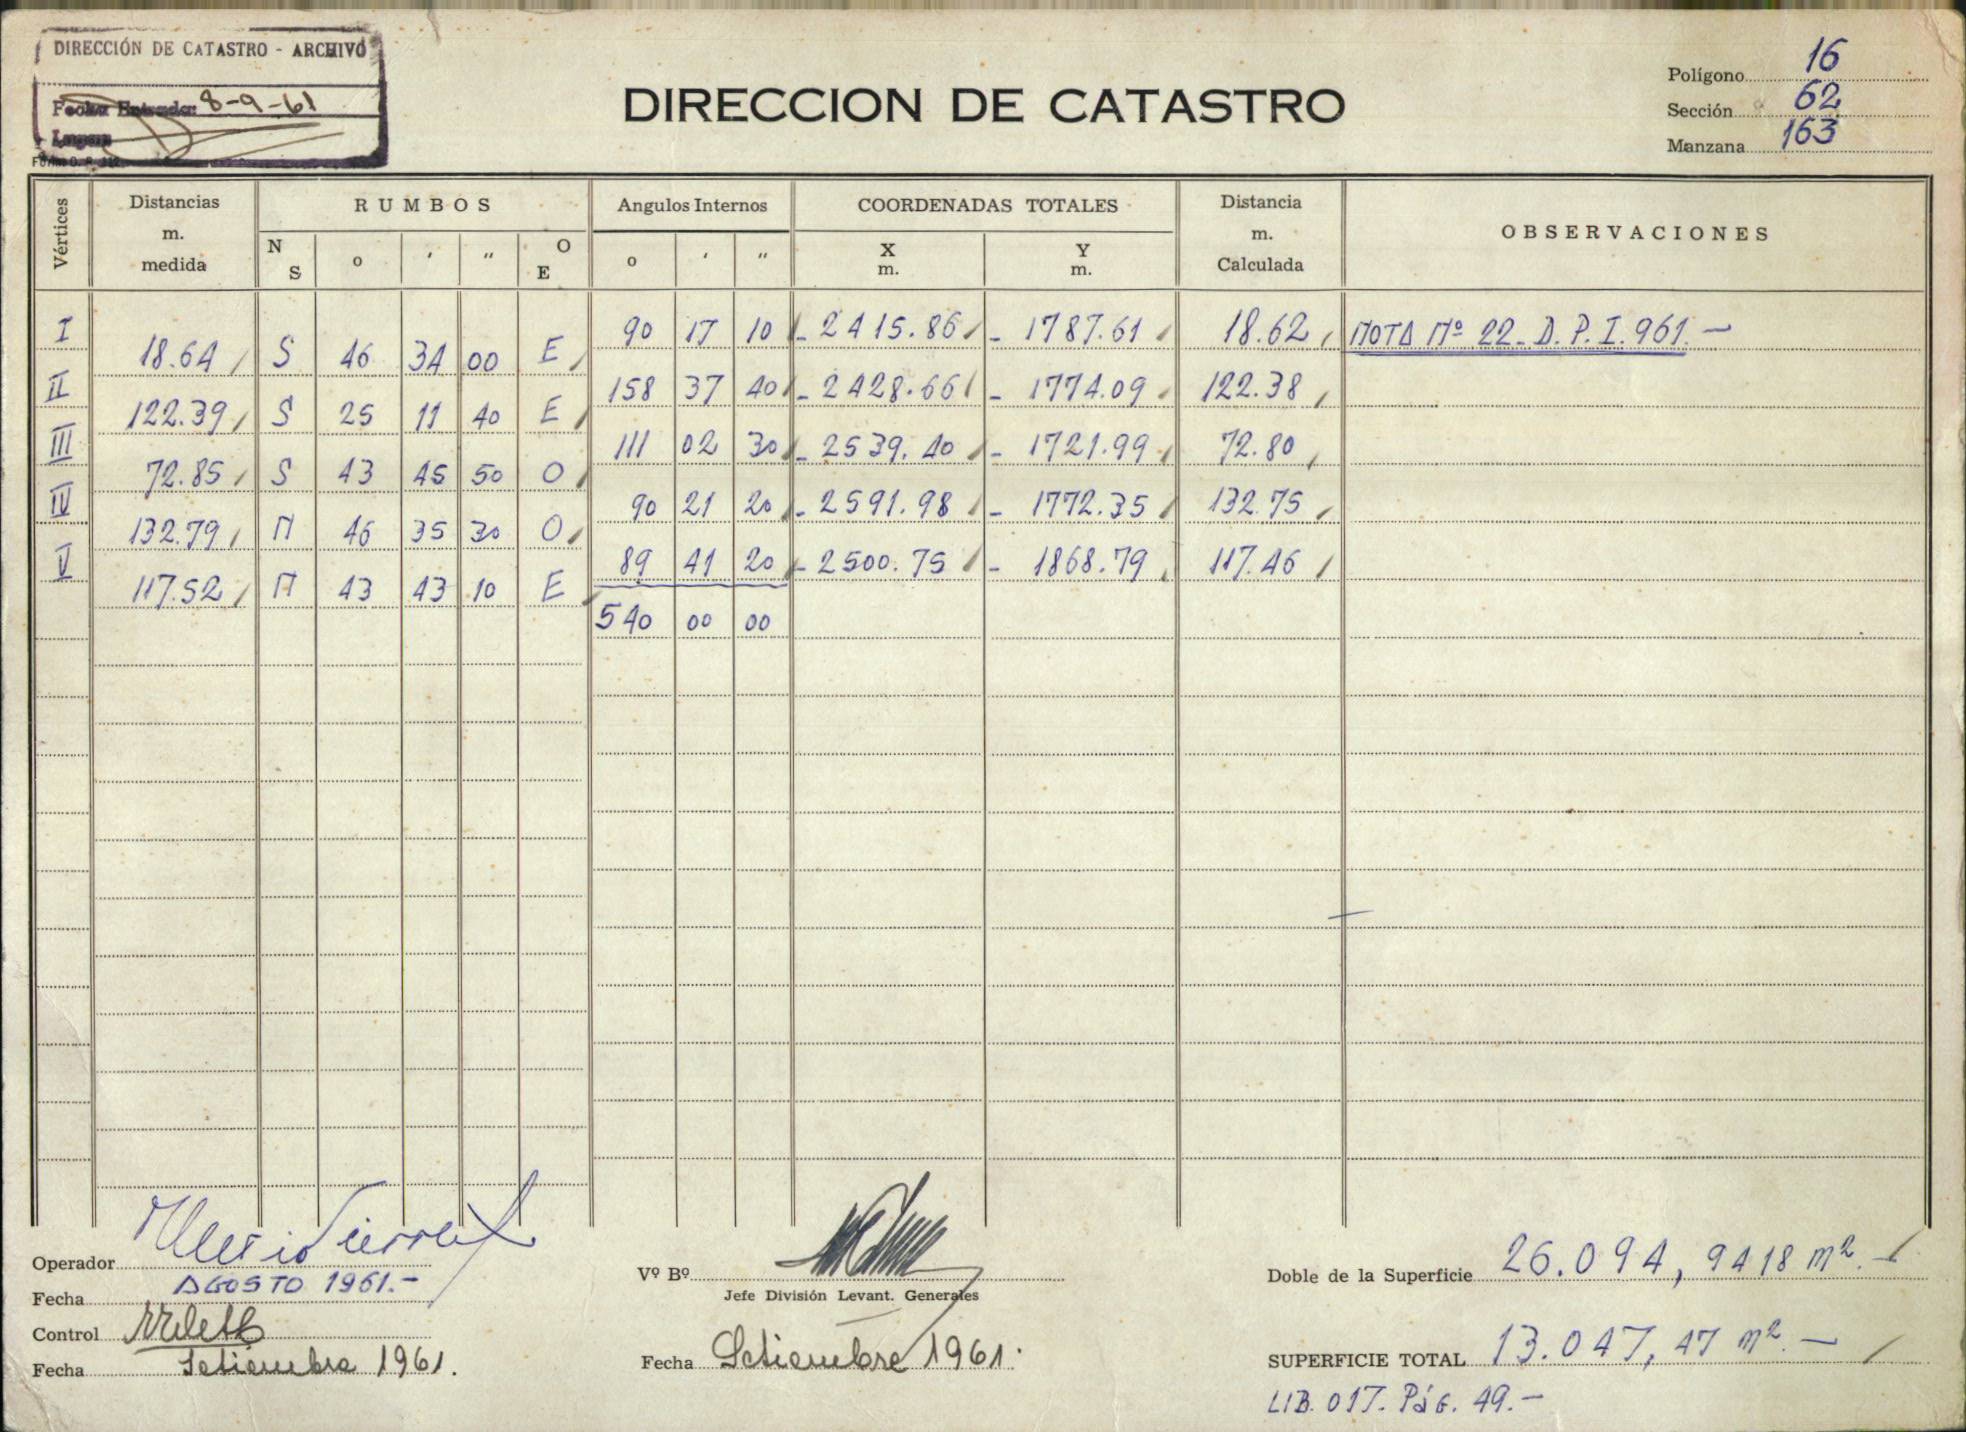 DIRECCIÓN DE CATASTRO - ARCHIVO
Fecha Entrada: 8-9-61
DIRECCION DE CATASTRO
Polígono 16
Sección 62
Manzana 163
Vértices
Distancias m. medida
RUMBOS
N S o ' " O E
Angulos Internos
o ' "
COORDENADAS TOTALES
X m. Y m.
Distancia m. Calculada
OBSERVACIONES
I 90 17 10 - 2415.86 - 1787.61 18.62 NOTA Nº 22_D.P.I.961.-
18.64 S 46 34 00 E
II 158 37 40 - 2428.66 - 1774.09 122.38
122.39 S 25 11 40 E
III 111 02 30 - 2539.40 - 1721.99 72.80
72.85 S 43 45 50 O
IV 90 21 20 - 2591.98 - 1772.35 132.75
132.79 N 46 35 30 O
V 89 41 20 - 2500.75 - 1868.79 117.46
117.52 N 43 43 10 E
540 00 00
Operador
Fecha AGOSTO 1961.-
Control
Fecha Setiembre 1961.
Vº Bº
Jefe División Levant. Generales
Fecha Setiembre 1961.
Doble de la Superficie 26.094,9418 m². -
SUPERFICIE TOTAL 13.047,47 m². -
LIB. 017. PáG. 49.-